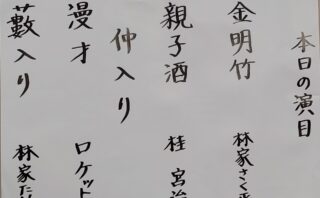 本日の演目
金明竹 林家さく
親子酒 桂 宮治
仲入り
漫才 ロケット
藪入り 林家た